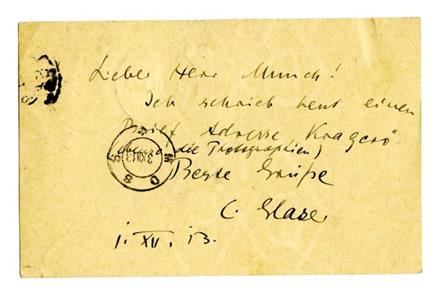 Lieber Herr Munch!
Ich schrieb heut einen
Brief Adresse Kragerö.
(ebenso die Photographien)
MOSS
3 XII 13
Beste Grüße
C. Glaser
1. XII. 13.